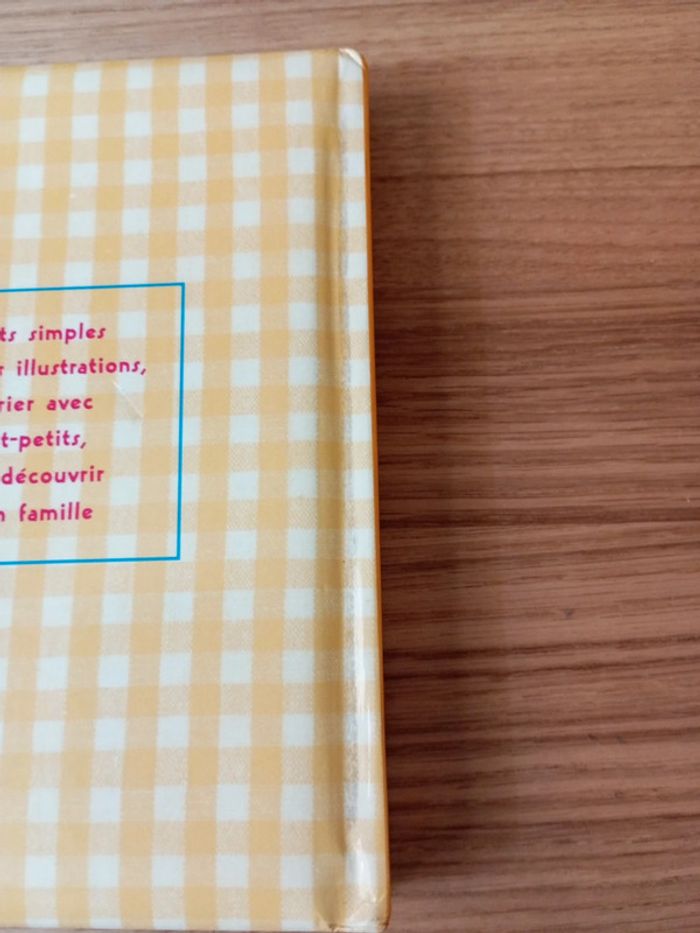 ts simples
r illustrations,
rier avec
t-petits,
découvrir
n famille